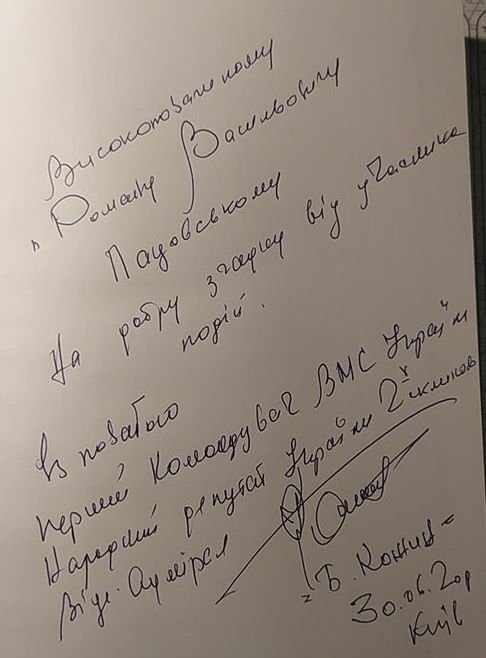 Високоповажному
"Роману Васильовичу
Пацовському
На добру згадку від учасника
подій.
Із повагою
Перший Командувач ВМС України
Народний депутат України 2х скликань
Віце-Адмірал
= Б. Кожин =
30.06.20р
Київ